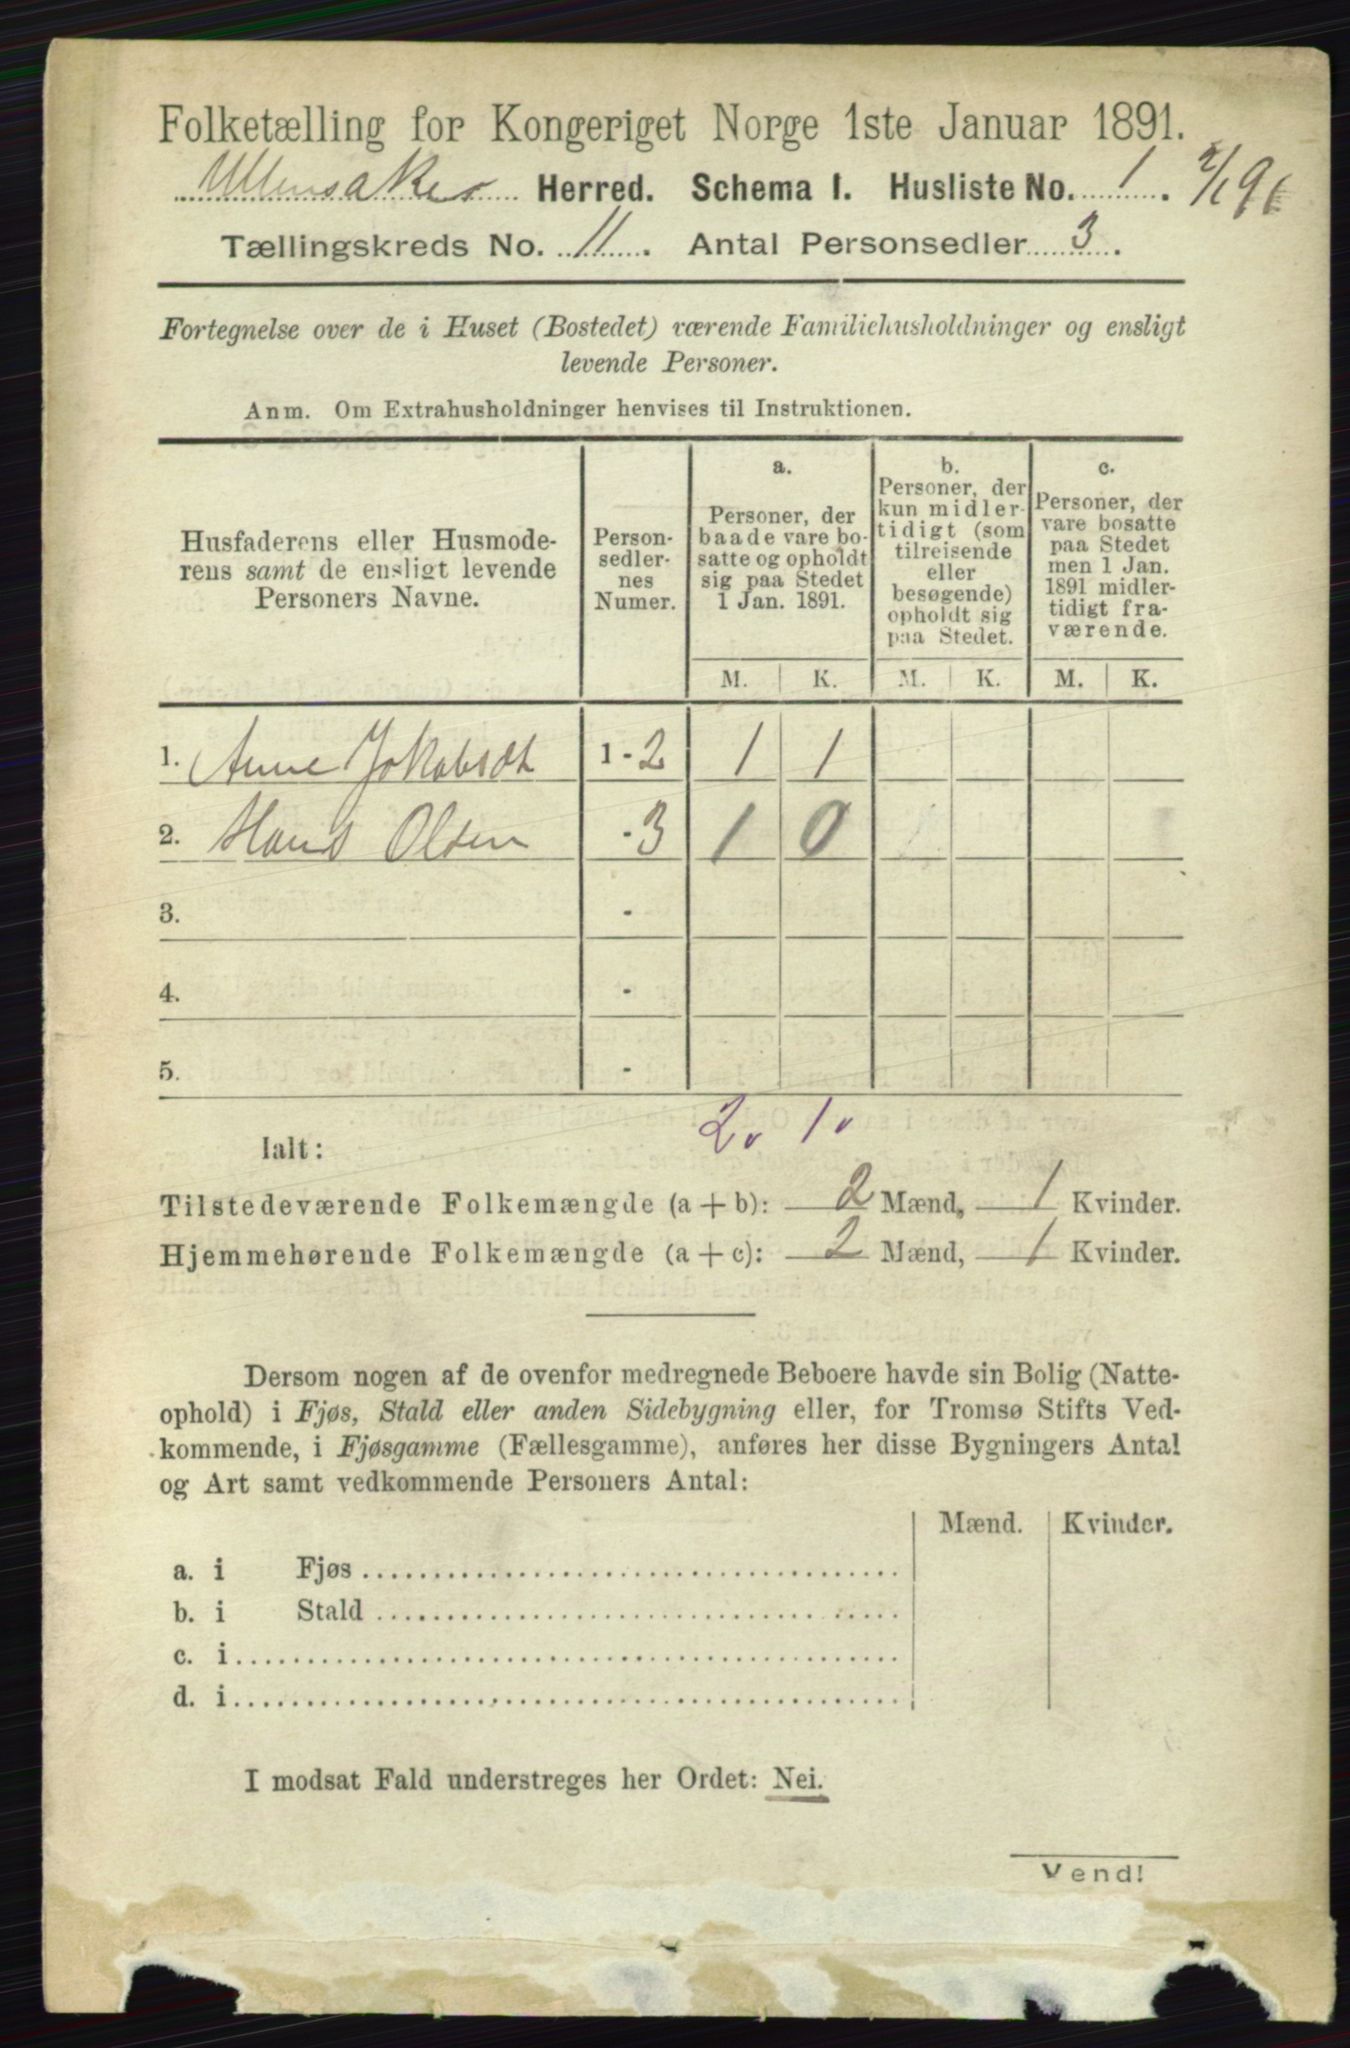 Folketælling for Kongeriget Norge 1ste Januar 1891.
Ullensaker Herred. Schema I. Husliste No. 1.
Tællingskreds No. 11. Antal Personsedler 3.
Fortegnelse over de i Huset (Bostedet) værende Familiehusholdninger og ensligt
levende Personer.
Anm. Om Extrahusholdninger henvises til Instruktionen.
Husfaderens eller Husmode-
rens samt de ensligt levende
Personers Navne.
Person-
sedler-
nes
Numer.
a.
Personer, der
baade vare bo-
satte og opholdt
sig paa Stedet
1 Jan. 1891.
b.
Personer, der
kun midler-
tidigt (som
tilreisende
eller
besøgende)
opholdt sig
paa Stedet.
c.
Personer, der
vare bosatte
paa Stedet
men 1 Jan.
1891 midler-
tidigt fra-
værende.
M. K. M. K. M. K.
1. Anne Jakobsdt 1 - 2 1 1
2. Hans Olsen - 3 1 0
3. -
4. -
5. -
2. 1.
Ialt:
Tilstedeværende Folkemængde (a + b): 2 Mænd, 1 Kvinder.
Hjemmehørende Folkemængde (a + c): 2 Mænd, 1 Kvinder.
Dersom nogen af de ovenfor medregnede Beboere havde sin Bolig (Natte-
ophold) i Fjøs, Stald eller anden Sidebygning eller, for Tromsø Stifts Ved-
kommende, i Fjøsgamme (Fællesgamme), anføres her disse Bygningers Antal
og Art samt vedkommende Personers Antal:
Mænd. Kvinder.
a. i Fjøs
b. i Stald
c. i
d. i
I modsat Fald understreges her Ordet: Nei.
Vend!